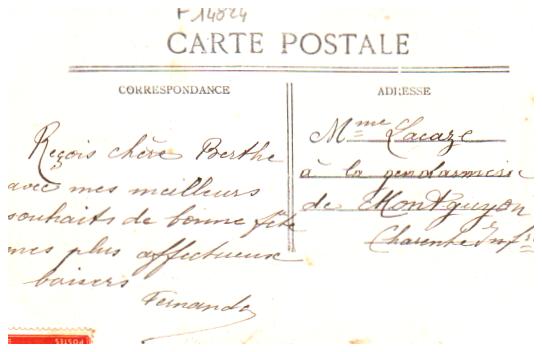 F 14824
CARTE POSTALE
CORRESPONDANCE
ADRESSE
Reçois chère Berthe
avec mes meilleurs
souhaits de bonne fête
mes plus affectueux
baisers
Fernande
Mme Lacaze
à la gendarmerie
de Montguyon
Charente Infre
POSTES